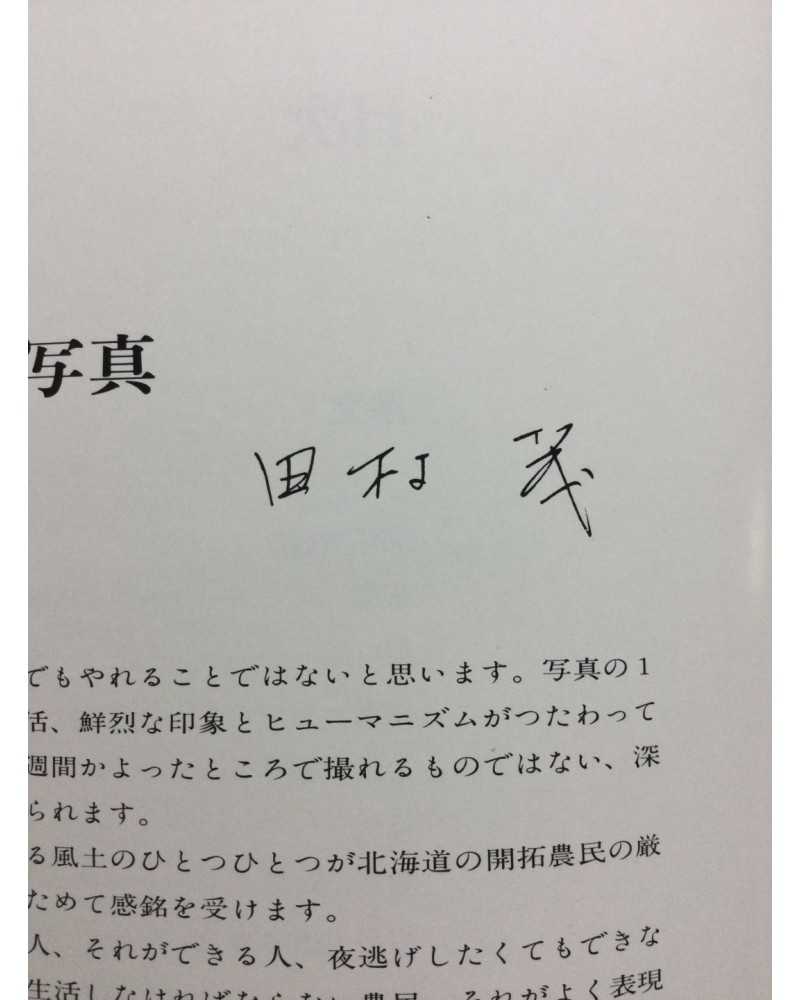 写真
田村 茂
でもやれることではないと思います。写真の1
活、鮮烈な印象とヒューマニズムがつたわって
週間かよったところで撮れるものではない、深
られます。
る風土のひとつひとつが北海道の開拓農民の厳
ためて感銘を受けます。
人、それができる人、夜逃げしたくてもできな
生活しなければならない農民、それがよく表現